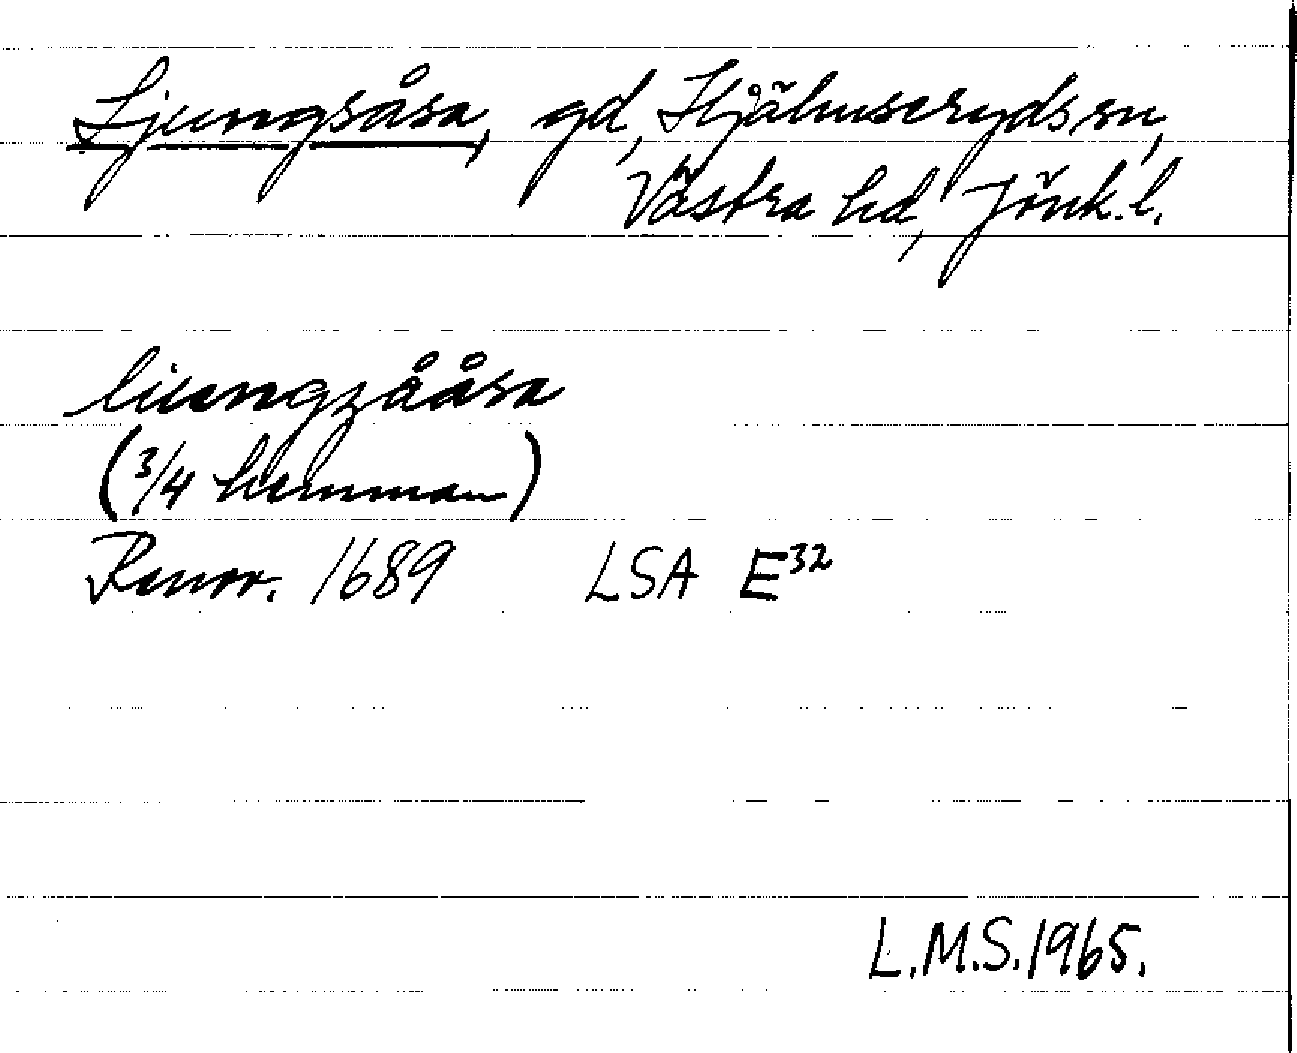 Ljungsåsa, gd, Hjälmseryds sn,
Västra hd, Jönk. l.
liungzååsa
(3/4 hemman)
Renov. 1689 LSA E³²
L.M.S. 1965.